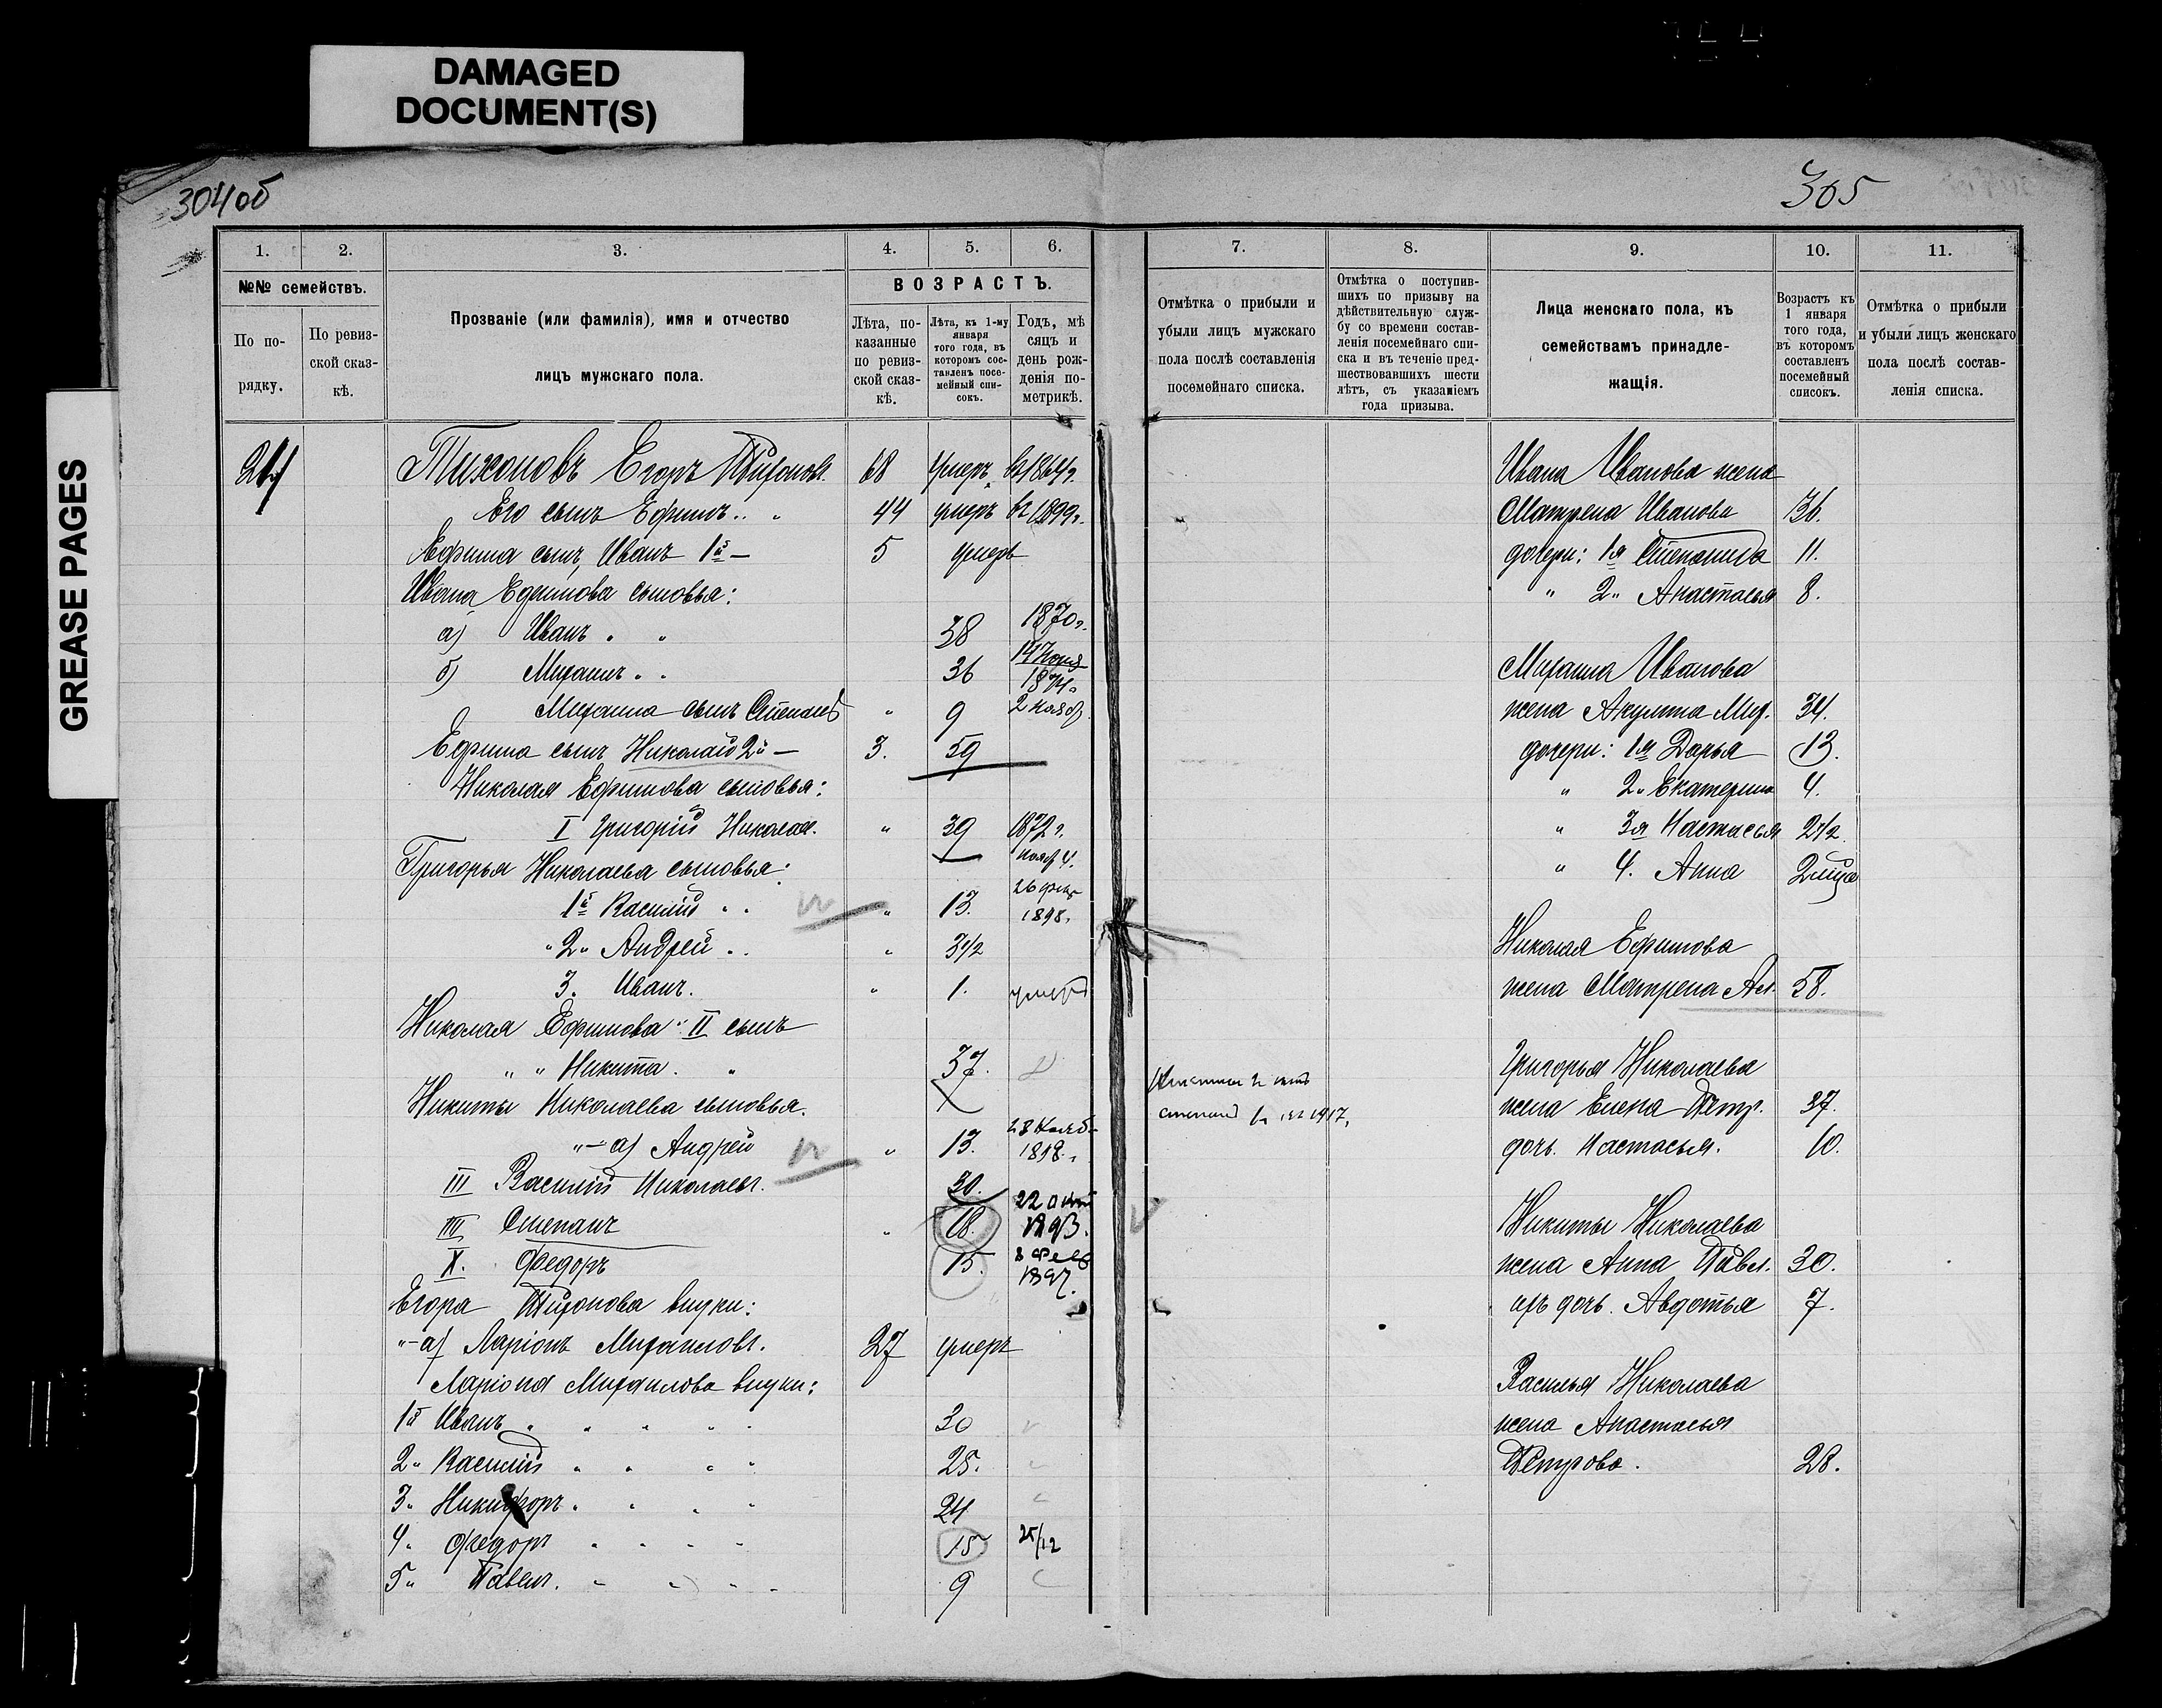 DAMAGED
DOCUMENT(S)
GREASE PAGES
304 об
305
1. 2. 3. 4. 5. 6.
№№ семействъ.
По по-
рядку.
По ревиз-
ской сказ-
кѣ.
Прозваніе (или фамилія), имя и отчество
лицъ мужскаго пола.
ВОЗРАСТЪ.
Лѣта, по-
казанные
по ревиз-
ской сказ-
кѣ.
Лѣта, къ 1-му
января
того года, въ
которомъ сос-
тавленъ посе-
мейный спи-
сокъ.
Годъ, мѣ
сяцъ и
день рож-
денія по-
метрикѣ.
Тихоновъ Егоръ Тихонов. 68 умеръ въ 1864г.
Его сынъ Ефимъ " " 44 умеръ въ 1899г.
Ефима сынъ, Иванъ 1й — 5 умеръ
Ивана Ефимова сыновья:
а) Иванъ " " 38 1870г.
б) Михаилъ " " 36 1874г.
Михаила сынъ Степанъ " 9 2 нояб
Ефима сынъ Николай 2й — 3. 59
Николая Ефимова сыновья:
I Григорій Николаев. " 39 1872г.
нояб 4.
Григорья Николаева сыновья:
1й Василій " " " 13. 26 фев
1898.
" 2" Андрей " " " 3 1/2
3. Иванъ. " 1. умеръ
Николая Ефимова II сынъ
" " Никита. " 37.
Никиты Николаева сыновья.
"— а) Андрей " 13. 28 Нояб
1898.
III Василій Николаев. 30.
IIII Степанъ " 18. 22 окт
1893.
X. Федоръ 15. 8 Фев
1897.
Егора Тихонова внуки:
"— а) Ларіонъ Михаилов. 27 умеръ
Ларіона Михаилова внуки:
1й Иванъ " " " " " 30
2" Василій " " " " 25.
3" Никифоръ " " " " 24
4" Федоръ " " " " 15 25/12
5" Павелъ. " " " " 9
7. 8. 9. 10. 11.
Отмѣтка о прибыли и
убыли лицъ мужскаго
пола послѣ составленія
посемейнаго списка.
Отмѣтка о поступив-
шихъ по призыву на
дѣйствительную служ-
бу со времени состав-
ленія посемейнаго спи-
ска и въ теченіе пред-
шествовавшихъ шести
лѣтъ, съ указаніемъ
года призыва.
Лица женскаго пола, къ
семействамъ принадле-
жащія.
Возрастъ къ
1 января
того года,
въ которомъ
составленъ
посемейный
списокъ.
Отмѣтка о прибыли
и убыли лицъ женскаго
пола послѣ состав-
ленія списка.
1917.
Ивана Иванова жена
Матрена Иванова 36.
дочери: 1я Степанида 11.
" 2" Анастасья 8.
Михаила Иванова
жена Акулина Мих. 34.
дочери: 1я Дарья 13.
" 2" Екатерина 4.
" 3я Настасья 2 1/2.
" 4. Анна 2 мца
Николая Ефимова
жена Матрена Ал. 58.
Григорья Николаева
жена Елена Петр. 37.
дочь. Настасья. 10.
Никиты Николаева
жена Анна Павл. 30.
ихъ дочь. Авдотья 7.
Василья Николаева
жена Анастасья
Петрова. 28.